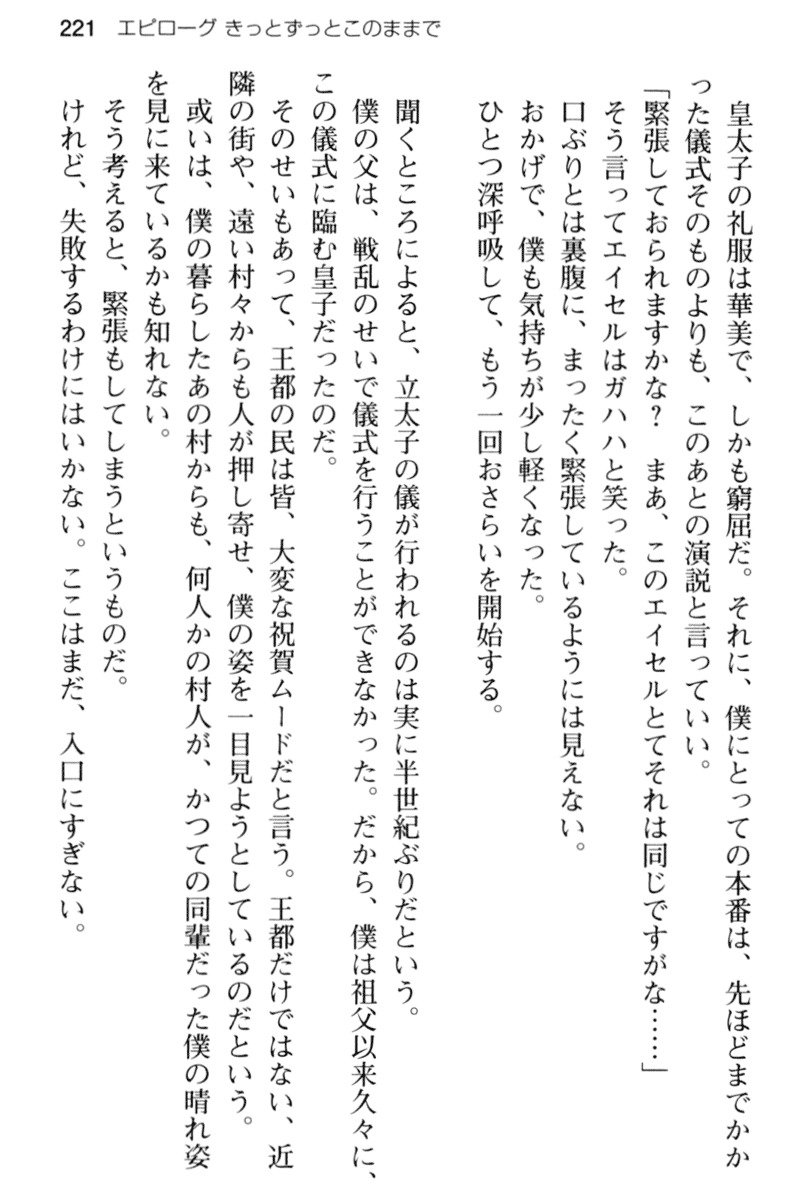 221 エピローグ きっとずっとこのままで
皇太子の礼服は華美で、しかも窮屈だ。それに、僕にとっての本番は、先ほどまでかか
った儀式そのものよりも、このあとの演説と言っていい。
「緊張しておられますかな? まあ、このエイセルとてそれは同じですがな……」
そう言ってエイセルはガハハと笑った。
口ぶりとは裏腹に、まったく緊張しているようには見えない。
おかげで、僕も気持ちが少し軽くなった。
ひとつ深呼吸して、もう一回おさらいを開始する。
聞くところによると、立太子の儀が行われるのは実に半世紀ぶりだという。
僕の父は、戦乱のせいで儀式を行うことができなかった。だから、僕は祖父以来久々に、
この儀式に臨む皇子だったのだ。
そのせいもあって、王都の民は皆、大変な祝賀ムードだと言う。王都だけではない、近
隣の街や、遠い村々からも人が押し寄せ、僕の姿を一目見ようとしているのだという。
或いは、僕の暮らしたあの村からも、何人かの村人が、かつての同輩だった僕の晴れ姿
を見に来ているかも知れない。
そう考えると、緊張もしてしまうというものだ。
けれど、失敗するわけにはいかない。ここはまだ、入口にすぎない。